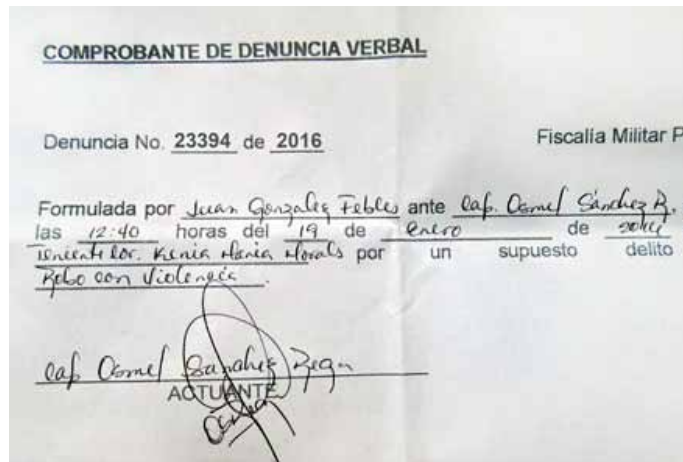 COMPROBANTE DE DENUNCIA VERBAL
Denuncia No. 23394 de 2016 Fiscalía Militar P
Formulada por Juan Gonzalez Febles ante Cap. Osmel Sánchez R.
las 12:40 horas del 19 de enero de
Kenia María Morals por un supuesto delito
Robo con Violencia.
Cap Osmel Sanchez
ACTUANTE